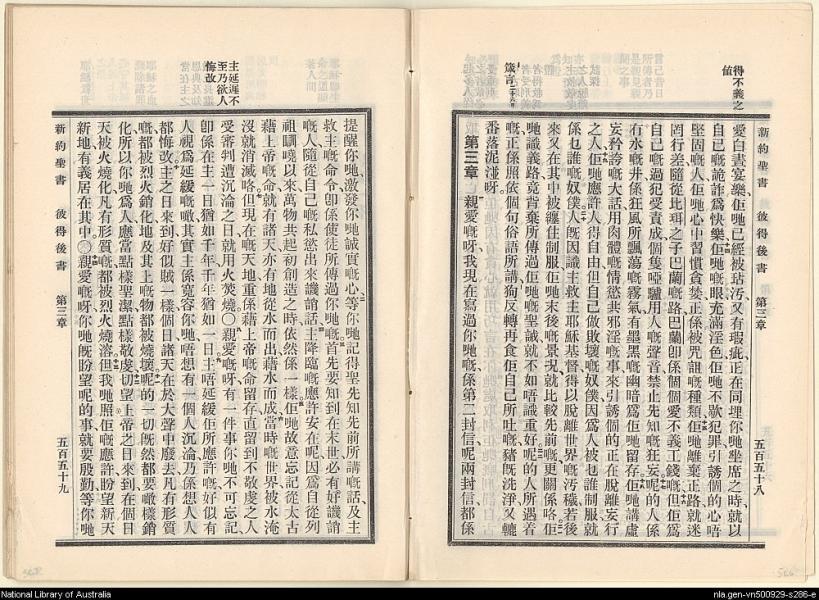 得不義之
値
箴言二十六章
新約聖書 彼得後書 第三章 五百五十八
愛白晝宴樂佢哋已經被玷汚又有瑕疵正在同埋你哋坐席之時就以
自己嘅詭詐爲快樂佢哋嘅眼充滿淫色佢哋不歇犯罪引誘個的心唔
堅固嘅人佢哋心中習慣貪婪正係被咒詛嘅種類佢哋離棄正路就迷
罔行差隨從比珥之子巴蘭嘅路巴蘭卽係個個愛不義工錢嘅但佢爲
自己嘅過犯受責成個隻啞驢用人嘅聲音禁止先知嘅狂妄呢的人係
冇水嘅井係狂風所飄蕩嘅霧氣有墨黑嘅幽暗爲佢哋留存佢哋講虛
妄矜誇嘅大話用肉體嘅情慾共邪淫嘅事來引誘個的正在脫離妄行
之人佢哋應許人得自由但自己做敗壞嘅奴僕因爲人被乜誰制服就
係乜誰嘅奴僕人旣因識主救主耶穌基督得以脫離世界嘅汚穢若後
來又在其中被纏住制服佢哋末後嘅景況就比較先前嘅更關係咯佢
哋識義路竟背棄所傳過佢哋嘅聖誡就不如唔識重好呢的人所遇着
嘅正係照依個句俗語所講狗反轉再食佢自己所吐嘅豬旣洗淨又轆
番落泥湴呀
第三章 親愛嘅呀我現在寫過你哋嘅係第二封信呢兩封信都係
提醒你哋激發你哋誠實嘅心等你哋記得聖先知先前所講嘅話及主
救主嘅命令卽係使徒所傳過你哋嘅首先要知到在末世必有好譏誚
嘅人隨從自己嘅私慾出來譏誚話主降臨嘅應許安在呢因爲自從列
祖瞓曉以來萬物共起初創造之時依然係一樣佢哋故意忘記從太古
藉上帝嘅命就有諸天亦有地從水而出藉水而成當時嘅世界被水淹
沒就消滅咯但現在嘅天地重係藉上帝嘅命留存直留到不敬虔之人
受審判遭沉淪之日就用火焚燒〇親愛嘅呀有一件事你哋不可忘記
卽係在主一日猶如千年千年猶如一日主唔延緩佢所應許嘅好似有
人視爲延緩嘅噉其實主係寬容你哋唔想有一個人沉淪乃係想人人
都悔改主之日來到好似賊一樣個日諸天在於大聲中廢去凡有形質
嘅都被烈火銷化地及其上嘅物都被燒壞呢的一切旣然都要噉樣銷
化所以你哋爲人應當點樣聖潔點樣敬虔切望上帝之日來到在個日
天被火燒化凡有形質嘅都被烈火燒溶但我哋照佢嘅應許盼望新天
新地有義居在其中〇親愛嘅呀你哋旣盼望呢的事就要殷勤等你哋
主延遲不
至乃欲人
悔改
新約聖書 彼得後書 第三章 五百五十九
National Library of Australia
nla.gen-vn500929-s286-e